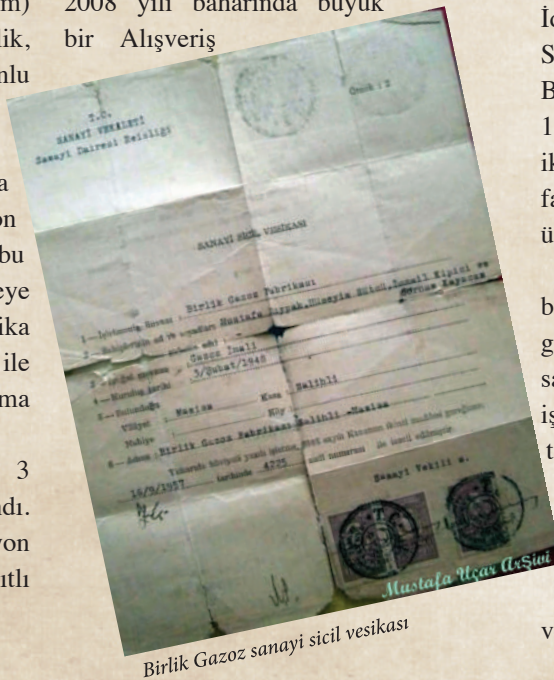 2008 yılı baharında büyük
bir Alışveriş
lik,
nlu
a
on
bu
eye
ika
ile
ma
3
ndı.
yon
ıtlı
T.C.
SANAYİ VEKALETİ
Sanayi Dairesi Reisliği
Örnek : 2
SANAYİ SİCİL VESİKASI
1 — İşletmenin Unvanı Birlik Gazoz Fabrikası
2 — Sahiplerinin ad ve soyadları Mustafa Hüseyin Sütcü, İsmail Kipici ve
Kayacan
3 — Gazoz İmali
4 — Kuruluş tarihi 5/Şubat/1948
5 — Bulunduğu
Vilâyet Manisa Kaza Salihli
Nahiye Köy
6 — Adresi Birlik Gazoz Fabrikası Salihli -Manisa
Yukarıda hüviyeti yazılı işletme, sayılı Kanunun ikinci maddesi gereğince
16/9/1957 tarihinde 4225 sicil numarası ile tescil edilmiştir.
Sanayi Vekili a.
Mustafa Uçar Arşivi
Birlik Gazoz sanayi sicil vesikası
B
1
ik
fa
ü
b
g
sa
iş
t
v